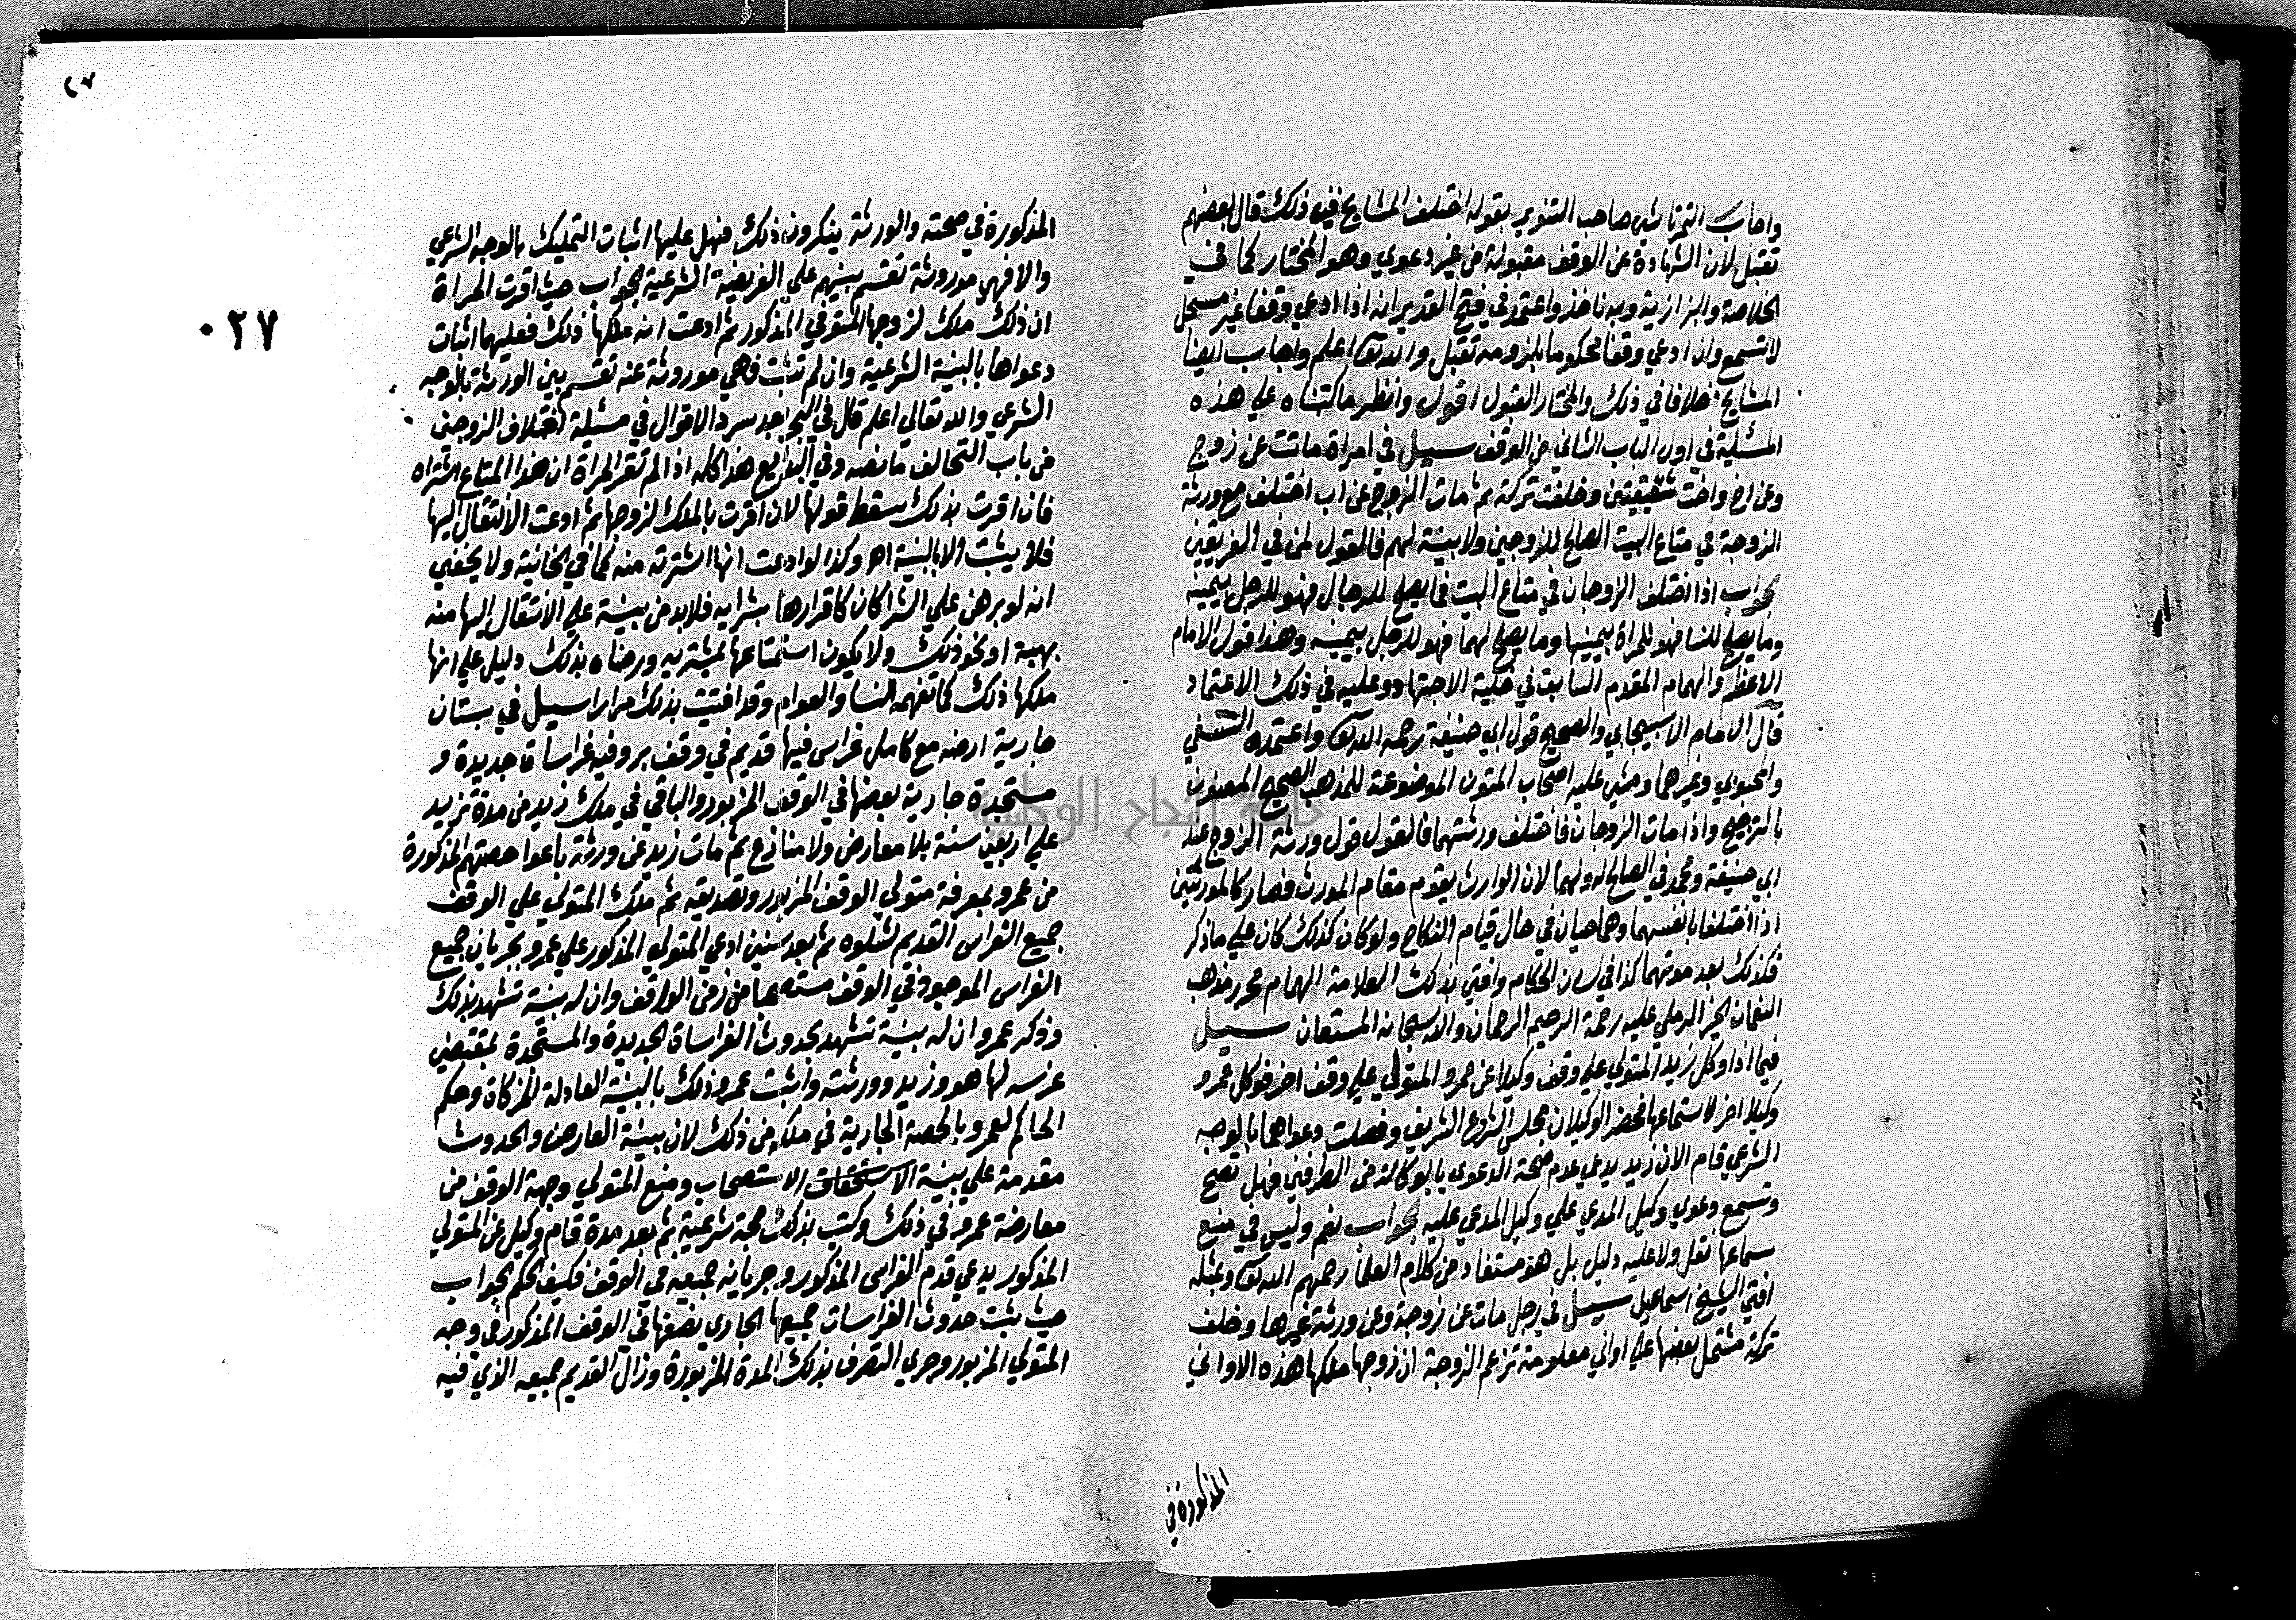 واجاب التمرتاشي صاحب التنوير بقوله اختلف المشايخ في ذلك قال بعضهم
تقبل لان الشهادة عن الوقف مقبولة من غير دعوي وهو المختار كما في
الخلاصة والبزازية وبه ناخذ واعتمد في فتح القدير انه اذا ادعي وقفا غير مسجل
لا تسمع وان ادعي وقفا محكوما بلزومه تقبل والله تعالى اعلم واجاب ايضا
المشايخ خلافا في ذلك والمختار القبول اقول وانظر ما كتبناه علي هذه
المسئلة في اول الباب الثاني من الوقف سيل في امراة ماتت عن زوج
وعن اخ واخت شقيقين وخلفت تركة ثم مات الزوج عن اب اختلف مع ورثة
الزوجة في متاع البيت الصالح للزوجين ولا بينة لهم فالقول لمن في الفريقين
الجواب اذا اختلف الزوجان في متاع البيت فما يصلح للرجال فهو للرجل بيمينه
وما يصلح للنسا فهو للمراة بيمينها وما يصلح لهما فهو للرجل بيمينه وهذا قول الامام
الاعظم والهمام المقدم السابق في حلبة الاجتهاد وعليه في ذلك الاعتماد
قال الامام الاسبيجابي والصحيح قول ابي حنيفة رحمه الله تعالى واعتمده النسفي
والمحبوبي وغيرهما ومشي عليه اصحاب المتون الموضوعة للمذهب الصحيح المعنون
بالترجيح واذا مات الزوجان فاختلف ورثتهما فالقول قول ورثة الزوج عند
ابي حنيفة ومحمد في الصالح له ولهما لان الوارث يقوم مقام المورث فصار كالمورثين
اذا اختلفا بانفسهما وهما حيان في حال قيام النكاح ولو كان كذلك كان علي ما ذكر
فكذلك بعد موتهما كذا في لسان الحكام وافتي بذلك العلامة الهمام محرر مذهب
النعمان الخير الرملي عليه رحمة الرحيم الرحمان والله سبحانه المستعان سيل
فيما اذا وكل زيد المتولي علي وقف وكيلا عن عمرو المتولي علي وقف اخر فوكل عمرو
وكيلا اخر لاستماعها فحضر الوكيلان مجلس الشرع الشريف وفصلت دعواهما بالوجه
الشرعي قام الان زيد يدعي عدم صحة الدعوي بالوكالة من الطرفين فهل تصح
وتسمع دعوي وكيل المدعي علي وكيل المدعي عليه الجواب نعم وليس في منع
سماعها نقل ولا عليه دليل بل هو مستفاد من كلام العلما رحمهم الله تعالى وبمثله
افتي الشيخ اسماعيل سيل في رجل مات عن زوجة وعن ورثة غيرها وخلف
تركة مشتمل بعضها علي اواني معلومة تزعم الزوجة ان زوجها ملكها هذه الاواني
المذكورة في
٢٧
٠٢٧
المذكورة في صحته والورثة ينكرون ذلك فهل عليها اثبات التمليك بالوجه الشرعي
والا فهي موروثة تقسم بينهم علي الفريضة الشرعية الجواب حيث اقرت المراة
ان ذلك ملك لزوجها المتوفي المذكور ثم ادعت انه ملكها ذلك فعليها اثبات
دعواها بالبينة الشرعية وان لم تثبت فهي موروثة عنه تقسم بين الورثة بالوجه
الشرعي والله تعالي اعلم قال في البحر بعد سرد الاقوال في مسئلة اختلاف الزوجين
من باب التحالف ما نصه وفي البدايع هذا كله اذا لم تقر المراة ان هذا المتاع اشتراه
فان اقرت بذلك سقط قولها لان اقرت بالملك لزوجها ثم ادعت الانتقال اليها
فلا يثبت الا بالبينة اه وكذا لو ادعت انها اشترته منه كما في الخانية ولا يخفي
انه لو برهن علي الشرا كان كاقرارها بشرايه فلا بد من بينة علي الانتقال اليها منه
بهبة او نحو ذلك ولا يكون استمتاعها بمشتريه ورضاه بذلك دليل علي انها
ملكها ذلك كما تفهمه النسا والعوام وقد افتيت بذلك مرارا سيل في بستان
جارية ارضه مع كامل غراس فيها قديم في وقف بر وفيه غراساة جديدة و
مستجدة جارية بعضها في الوقف المزبور والباقي في ملك زيد من مدة تزيد
علي اربعين سنة بلا معارض ولا منازع ثم مات زيد عن ورثة باعوا حصتهم المذكورة
من عمرو بمعرفة متولي الوقف المزبور وتصديقه ثم ملك المتولي علي الوقف
جميع الغراس القديم لشلوه ثم بعد سنين ادعي المتولي المذكور علي عمرو بجريان جميع
الغراس الموجود في الوقف مستصحبا من زمن الواقف وان له بينة تشهد بذلك
وذكر عمرو ان له بينة تشهد بحدوث الغراساة الجديدة والمستجدة بمقتضي
غرسه لها هو وزيد وورثته واثبت عمرو ذلك بالبينة العادلة المزكاة وحكم
الحاكم لعمرو بالحصة الجارية في ملكه من ذلك لان بينة العارض والحدوث
مقدمة علي بينة الاستصحاب ومنع المتولي وجهة الوقف من
معارضة عمرو في ذلك وكتب بذلك حجة شرعية ثم بعد مدة قام وكيل عن المتولي
المذكور يدعي قدم الغراس المذكور وجريانه جميعه في الوقف فكيف الحكم الجواب
حيث ثبت حدوث الغراسات جميعها الجاري نصفها في الوقف المذكور في وجه
المتولي المزبور وجري التصرف بذلك المدة المزبورة وزال القديم جميعه الذي فيه
جامعة النجاح الوطنية